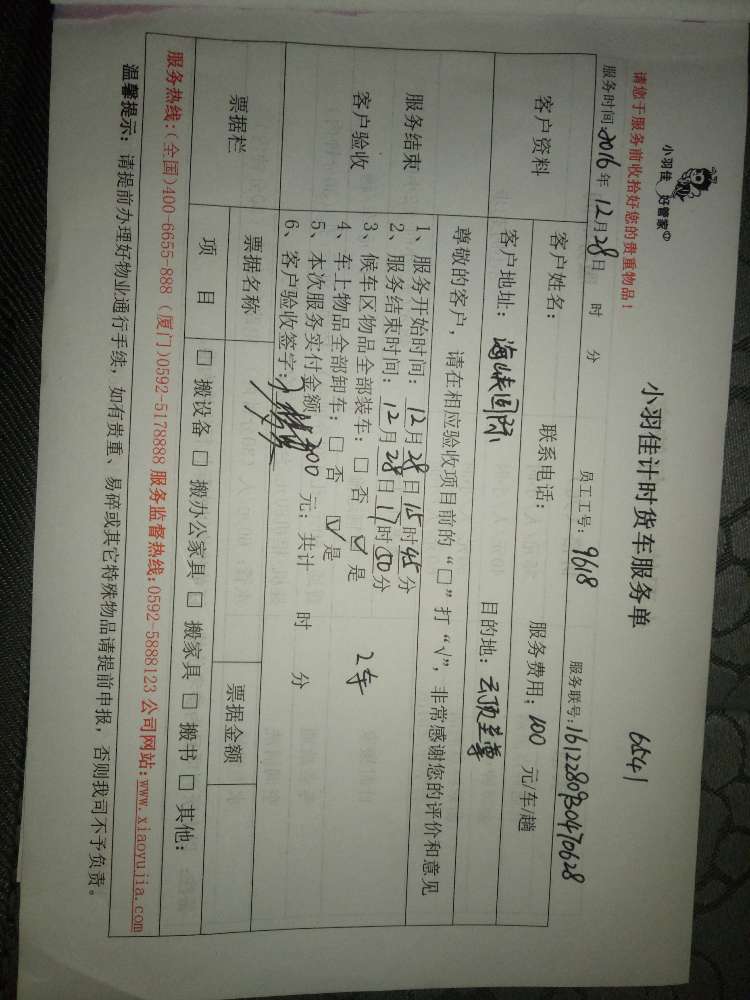 小羽佳 好管家
小羽佳计时货车服务单
6541
请您于服务前收拾好您的贵重物品！
服务时间:2016年12月28日 时 分 员工工号:9618 服务联号:1612280930470628
客户资料
客户姓名: 联系电话: 服务费用:100 元/车/趟
客户地址:海峡国际 目的地:云顶至尊
服务结束
客户验收
尊敬的客户，请在相应验收项目前的“□”打“√”，非常感谢您的评价和意见
1、服务开始时间:12月28日15时45分
2、服务结束时间:12月28日17时50分
3、候车区物品全部装车:□ 否 ☑ 是 2车
4、车上物品全部卸车:□ 否 ☑ 是
5、本次服务实付金额200元;共计 时 分
6、客户验收签字:
票据栏
票据名称 票据金额
项 目 □ 搬设备 □ 搬办公家具 □ 搬家具 □ 搬书 □ 其他:
服务热线:(全国)400-6655-888 (厦门)0592-5178888 服务监督热线:0592-5888123 公司网站:www.xiaoyujia.com
温馨提示: 请提前办理好物业通行手续，如有贵重、易碎或其它特殊物品请提前申报，否则我司不予负责。